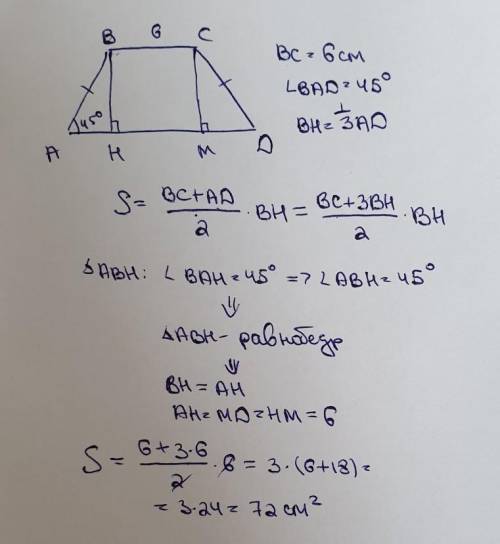 B 6 C
45°
A H M D
BC = 6см
∠BAD = 45°
BH = 1/3 AD
S = (BC + AD)/2 · BH = (BC + 3BH)/2 · BH
△ABH: ∠BAH = 45° => ∠ABH = 45°
⇓
△ABH – равнобедр
⇓
BH = AH
AH = MD = HM = 6
S = (6 + 3·6)/2 · 6 = 3·(6+18) =
= 3·24 = 72 см²